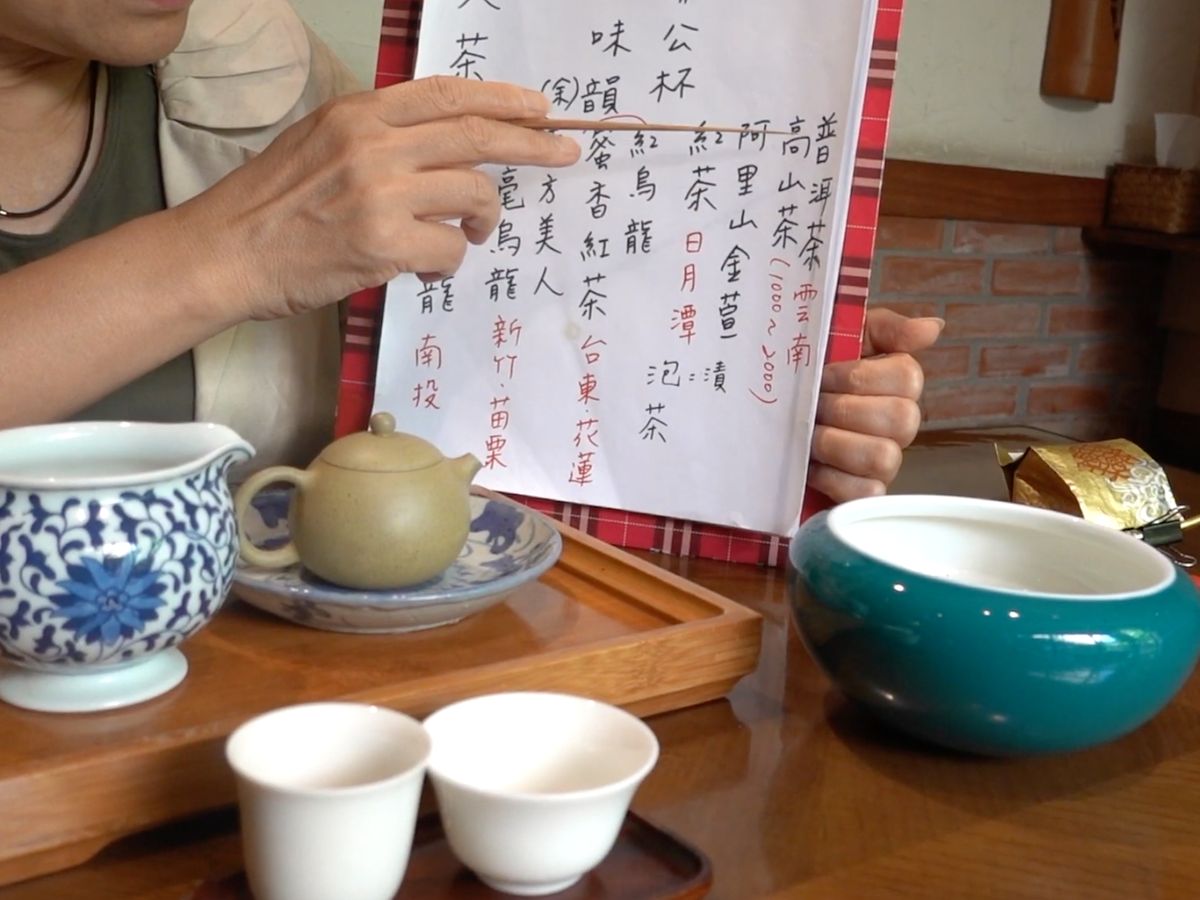 普洱茶 雲南
高山茶(1000~2000)
阿里山金萱
紅茶 日月潭
紅烏龍
蜜香紅茶 台東.花蓮
方美人
毫烏龍 新竹.苗栗
龍 南投
公杯
味韻
(余)
茶
泡=漬
茶